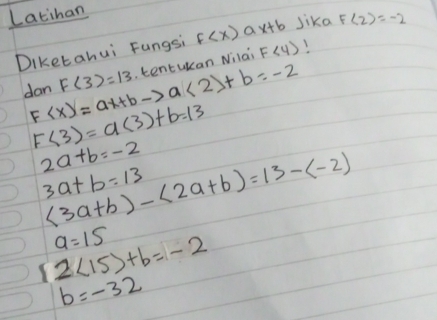 Latihan
Diketahui Fungsi F(x) ax+b Jika F(2)=-2
dan F(3)=13. tentukan Nilai F(4)!
F(x)= ax+b -> a(2)+b=-2
F(3)= a(3)+b=13
2a+b=-2
3a+b=13
(3a+b)-(2a+b)=13-(-2)
a=15
2(15)+b=-2
b=-32